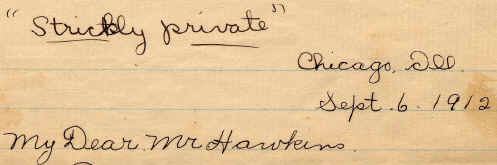 "Strickly private"
Chicago, Ill.
Sept. 6. 1912
My Dear Mr Hawkins.